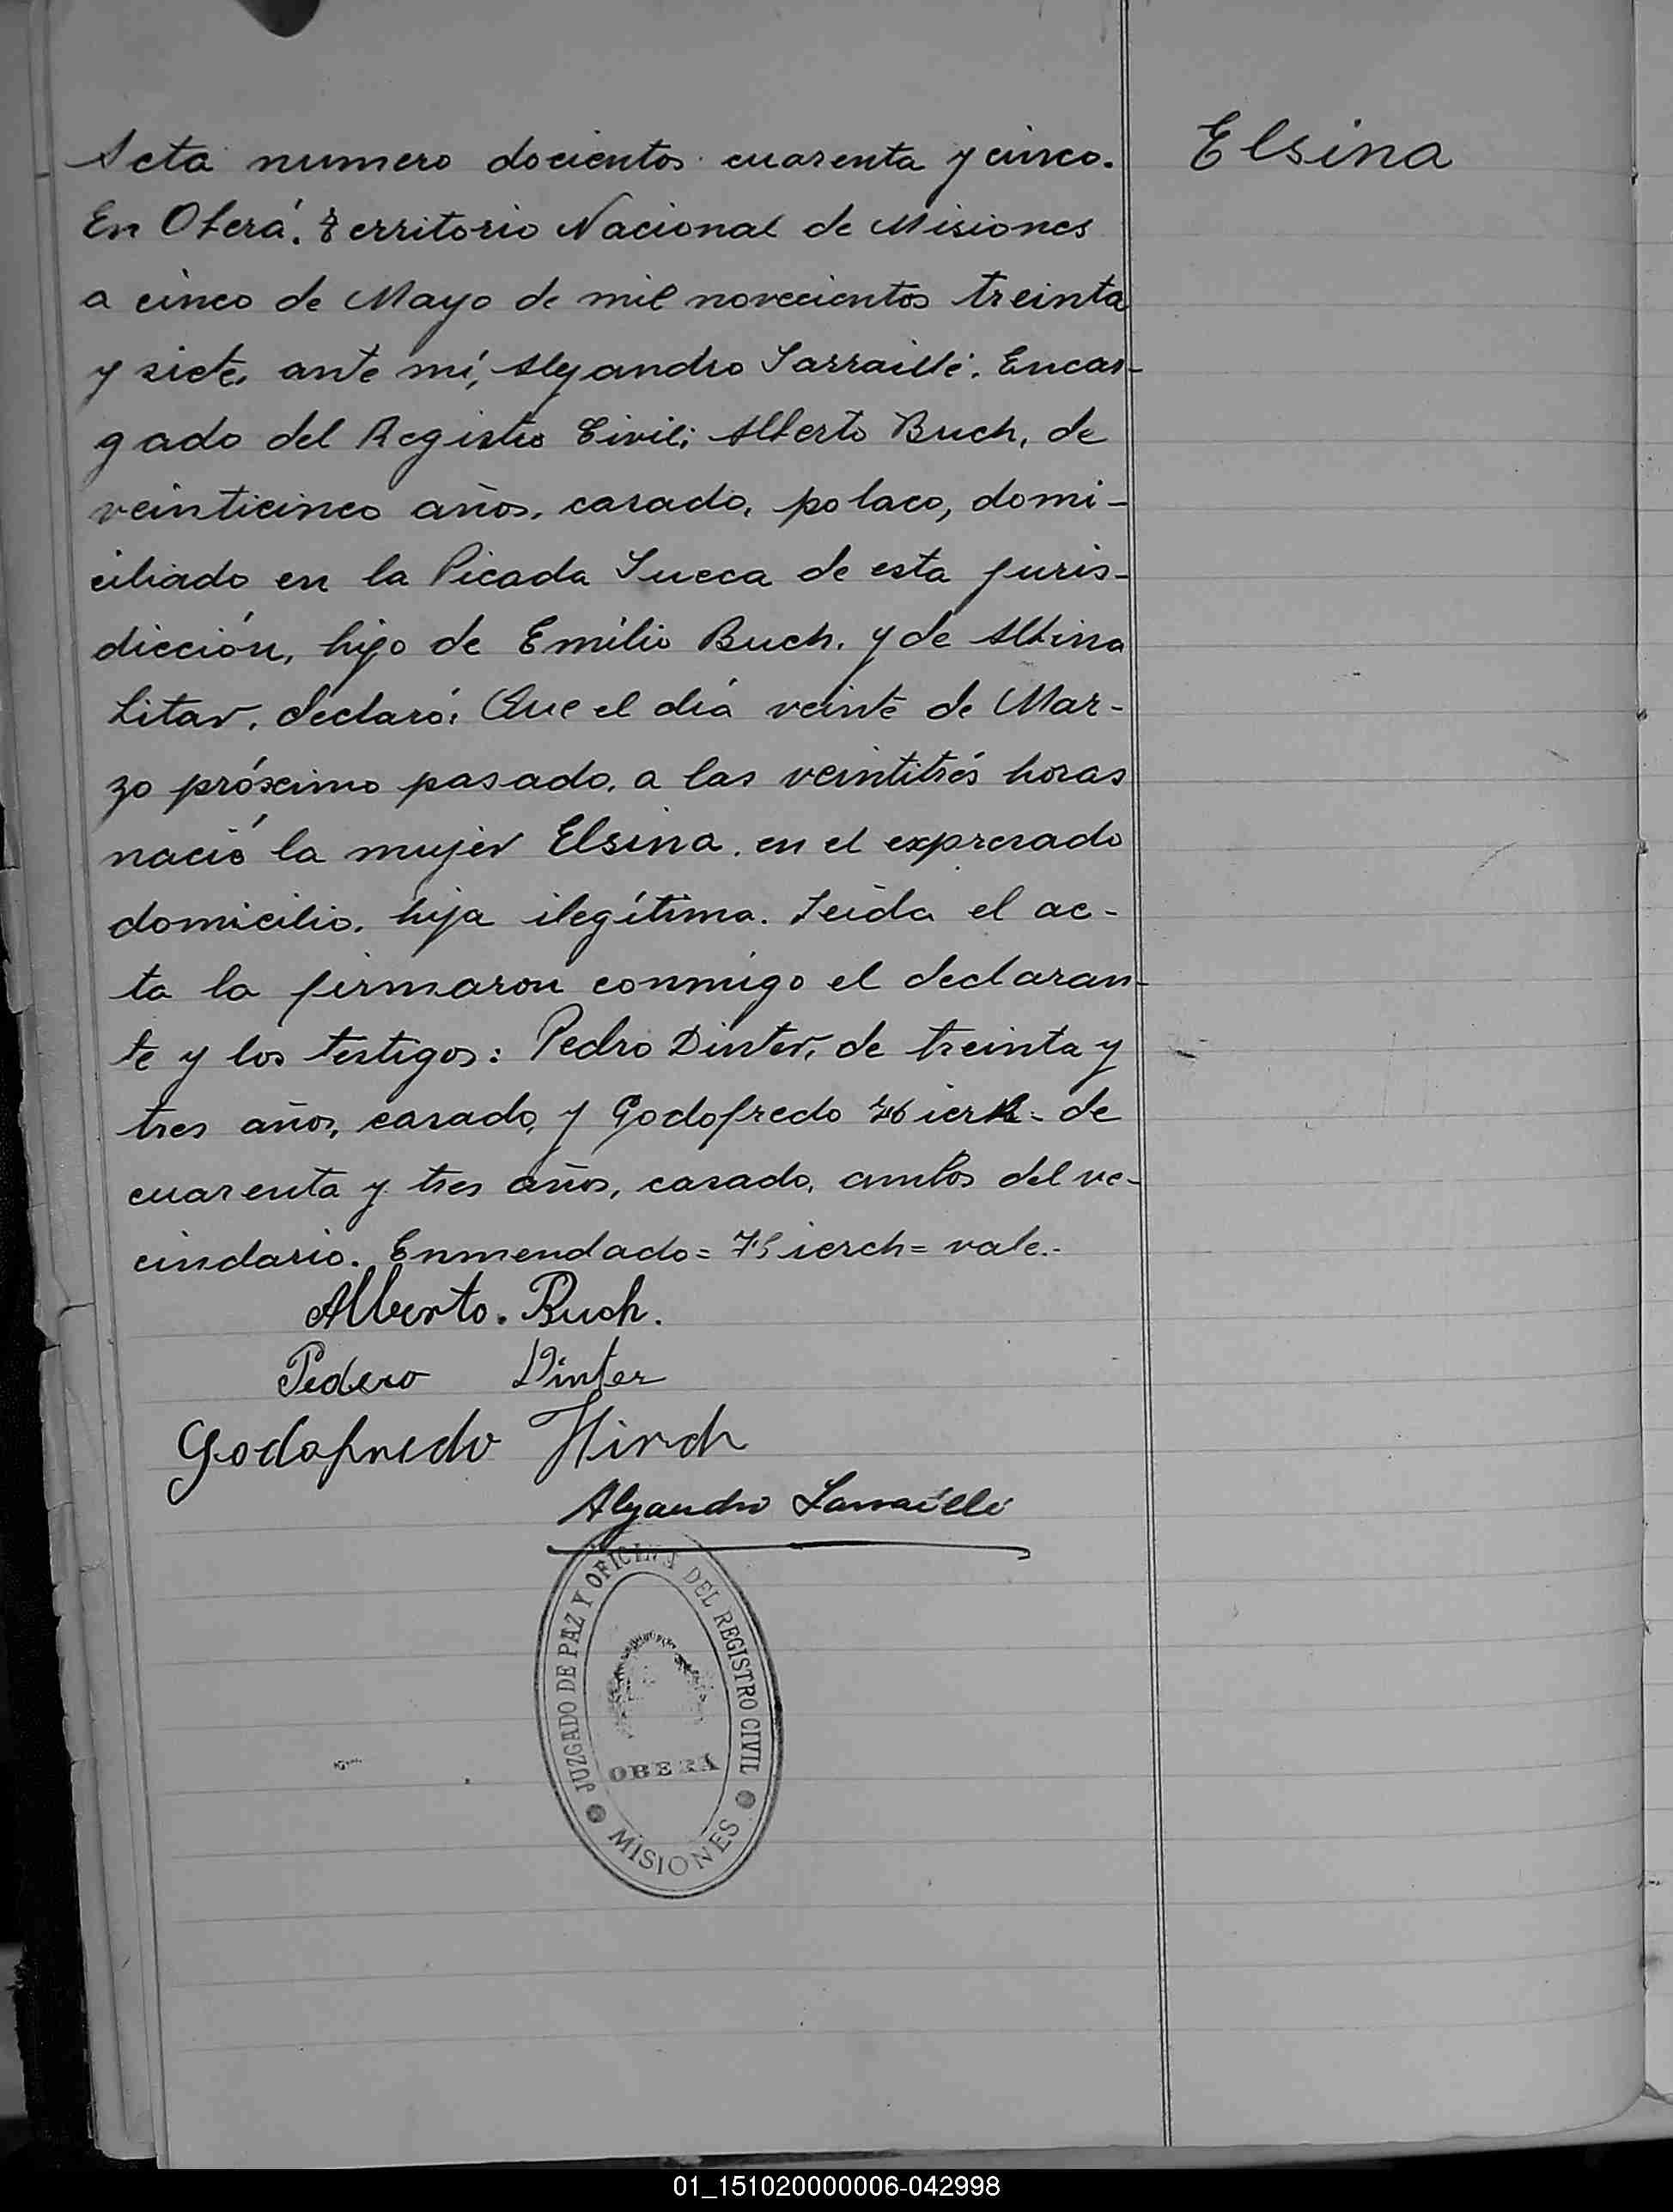 Elsina
Acta numero docientos cuarenta y cinco.
En Oberá. Territorio Nacional de Misiones
a cinco de Mayo de mil novecientos treinta
y siete, ante mí, Alejandro Sarraillé. Encar-
gado del Registro Civil; Alberto Buch, de
veinticinco años, casado, polaco, domi-
ciliado en la Picada Sueca de esta juris-
dicción, hijo de Emilio Buch. y de Albina
Litav. declaró: Que el día veinte de Mar-
zo próximo pasado, a las veintitrés horas
nació la mujer Elsina. en el expresado
domicilio. hija ilegítima. Leída el ac-
ta la firmaron conmigo el declaran-
te y los testigos: Pedro Dinter, de treinta y
tres años, casado, y Godofredo de
cuarenta y tres años, casado, ambos del ve-
cindario. Enmendado= Hierch= vale.-
Alberto. Buch.
Pedero Dinter
Godofredo Hirch
Alejandro Sarraillé
JUZGADO DE PAZ Y OFICINA DEL REGISTRO CIVIL
OBERA
MISIONES
01_151020000006-042998